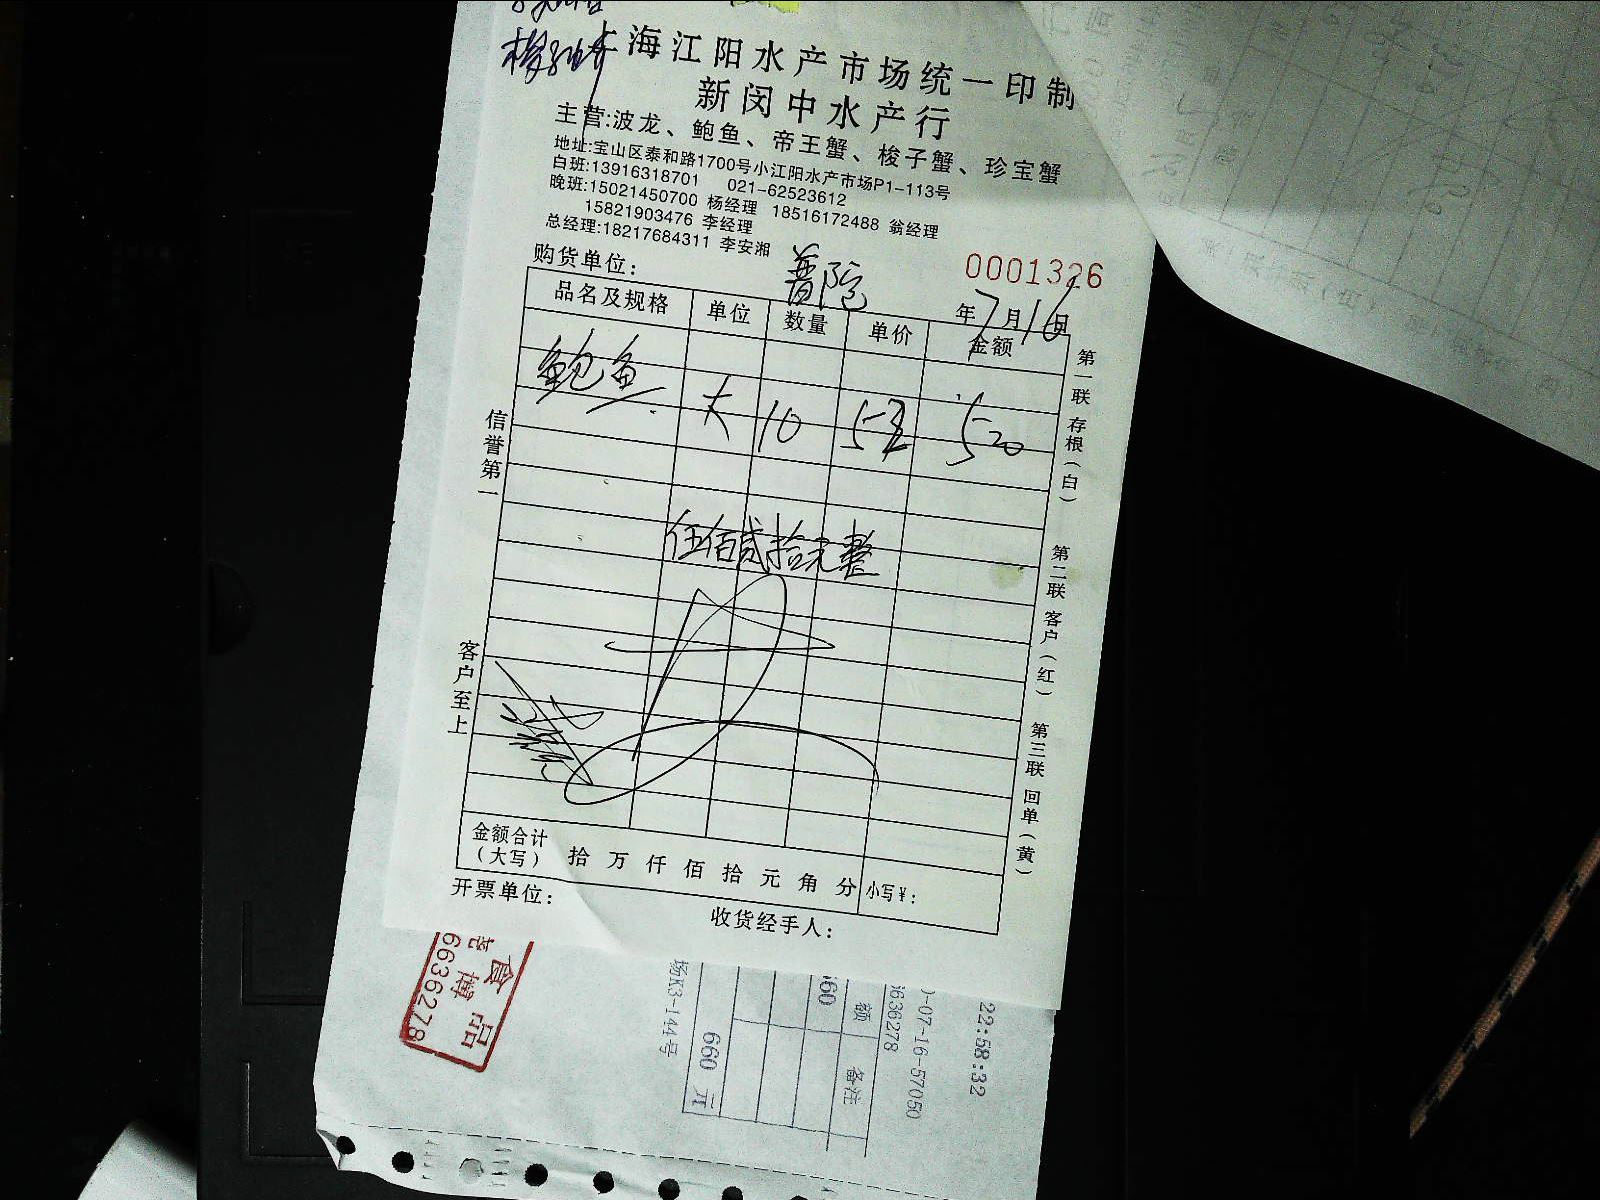 上海江阳水产市场统一印制
新闵中水产行
主营:波龙、鲍鱼、帝王蟹、梭子蟹、珍宝蟹
地址:宝山区泰和路1700号小江阳水产市场P1-113号
白班:13916318701 021-62523612
晚班:15021450700 杨经理 18516172488 翁经理
15821903476 李经理
总经理:18217684311 李安湘
购货单位: 普陀
0001326
年7月16日
品名及规格 单位 数量 单价 金额
鲍鱼 大 10 52 520
伍佰贰拾元整
信誉第一
客户至上
第一联 存根(白)
第二联 客户(红)
第三联 回单(黄)
金额合计(大写) 拾 万 仟 佰 拾 元 角 分 小写¥:
开票单位:
收货经手人:
食品
博
6636278
场K3-144号
660 元
额
备注
6636278
-07-16-57050
22:58:32